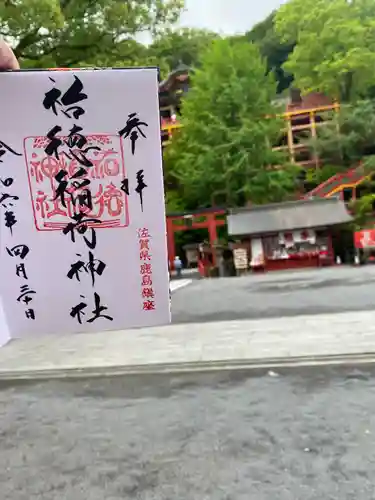 奉拝
祐徳稲荷神社
祐徳稲荷神社
令和六年四月三十日
佐賀県鹿島鎮座